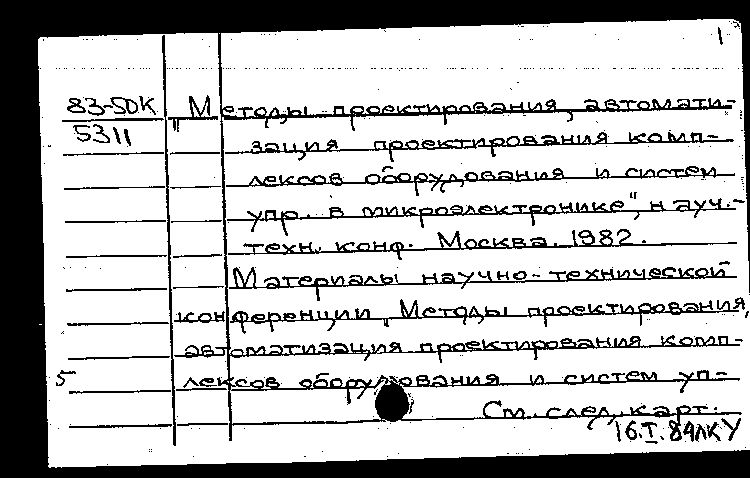 1
83-50К
5311
"Методы проектирования, автомати-
зация проектирования комп-
лексов оборудования и систем
упр. в микроэлектронике", науч.-
техн. конф. Москва. 1982.
Материалы научно-технической
конференции "Методы проектирования,
автоматизация проектирования комп-
лексов оборудования и систем уп-
5
См. след. карт.
16.I.84ЛКУ